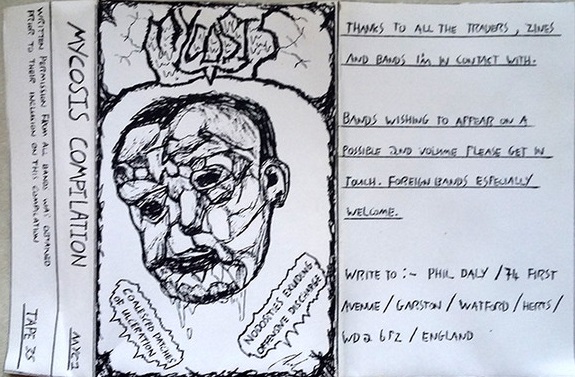 WRITTEN PERMISSION FROM ALL BANDS WAS OBTAINED
PRIOR TO THEIR INCLUSION ON THIS COMPILATION
TAPE 35
MYCOSIS COMPILATION
MYC:1
CONGESTED PATCHES
OF ULCERATION
NODOSITIES EXUDING
OFFENSIVE DISCHARGE
THANKS TO ALL THE TRADERS, ZINES
AND BANDS I'M IN CONTACT WITH.
BANDS WISHING TO APPEAR ON A
POSSIBLE 2ND VOLUME PLEASE GET IN
TOUCH. FOREIGN BANDS ESPECIALLY
WELCOME.
WRITE TO :~ PHIL DALY / 74 FIRST
AVENUE / GARSTON / WATFORD / HERTS /
WD2 6PZ / ENGLAND